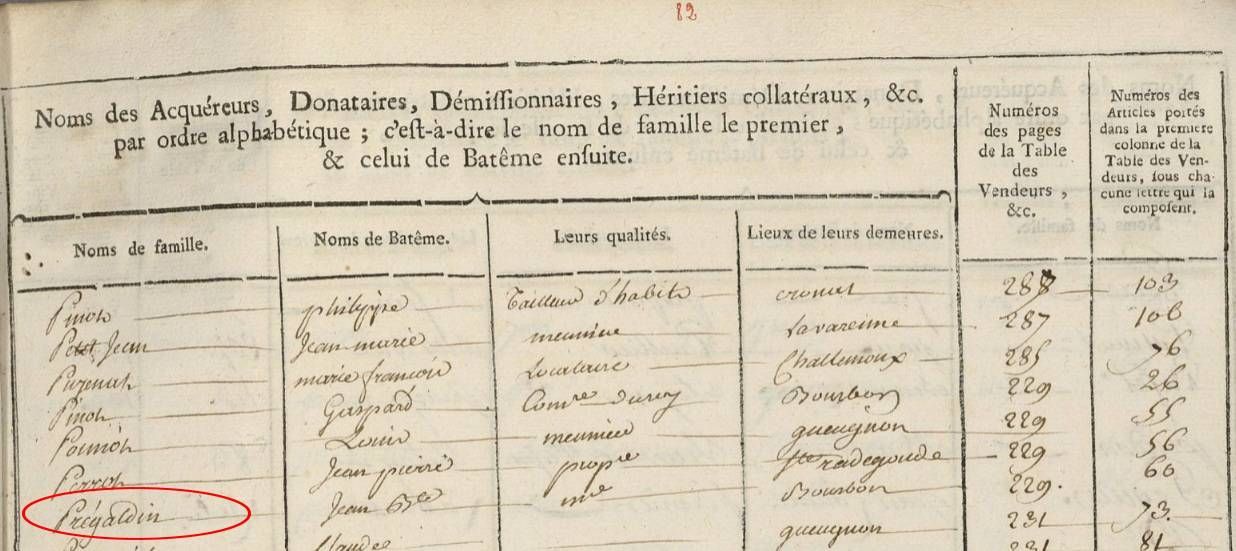 82
Noms des Acquéreurs, Donataires, Démissionnaires, Héritiers collatéraux, &c.
par ordre alphabétique ; c'est-à-dire le nom de famille le premier,
& celui de Batême ensuite.
Numéros
des pages
de la Table
des
Vendeurs,
&c.
Numéros des
Articles portés
dans la premiere
colonne de la
Table des Ven-
deurs, sous cha-
cune lettre qui la
composent.
Noms de famille. Noms de Batême. Leurs qualités. Lieux de leurs demeures.
Pinot philippe Tailleur d'habits cronat 288 103
Petit Jean Jean marie meunier Lavarenne 287 108
Puzenat marie françois Locataire Challemoux 285 76
Pinot Gaspard Comre du roy Bourbon 229 26
Ponnot Louis meunier gueugnon 229 55
Perrot Jean pierre propre Ste radegonde 229 56
Prégaldin Jean Bte me Bourbon 229. 60
Claude gueugnon 231 73.
231 81